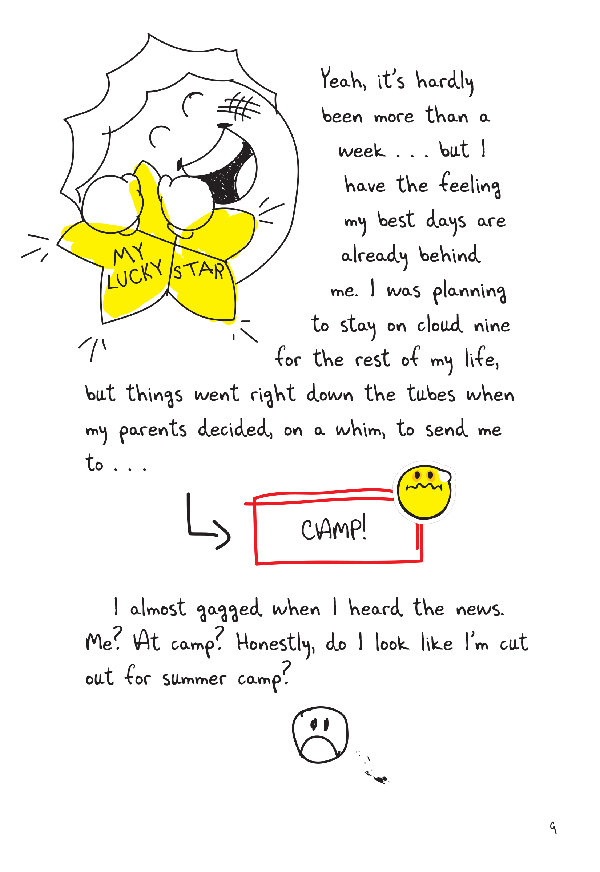 Yeah, it's hardly
been more than a
week . . . but I
have the feeling
my best days are
already behind
me. I was planning
to stay on cloud nine
for the rest of my life,
MY
LUCKY STAR
but things went right down the tubes when
my parents decided, on a whim, to send me
to . . .
CAMP!
I almost gagged when I heard the news.
Me? At camp? Honestly, do I look like I'm cut
out for summer camp?
9